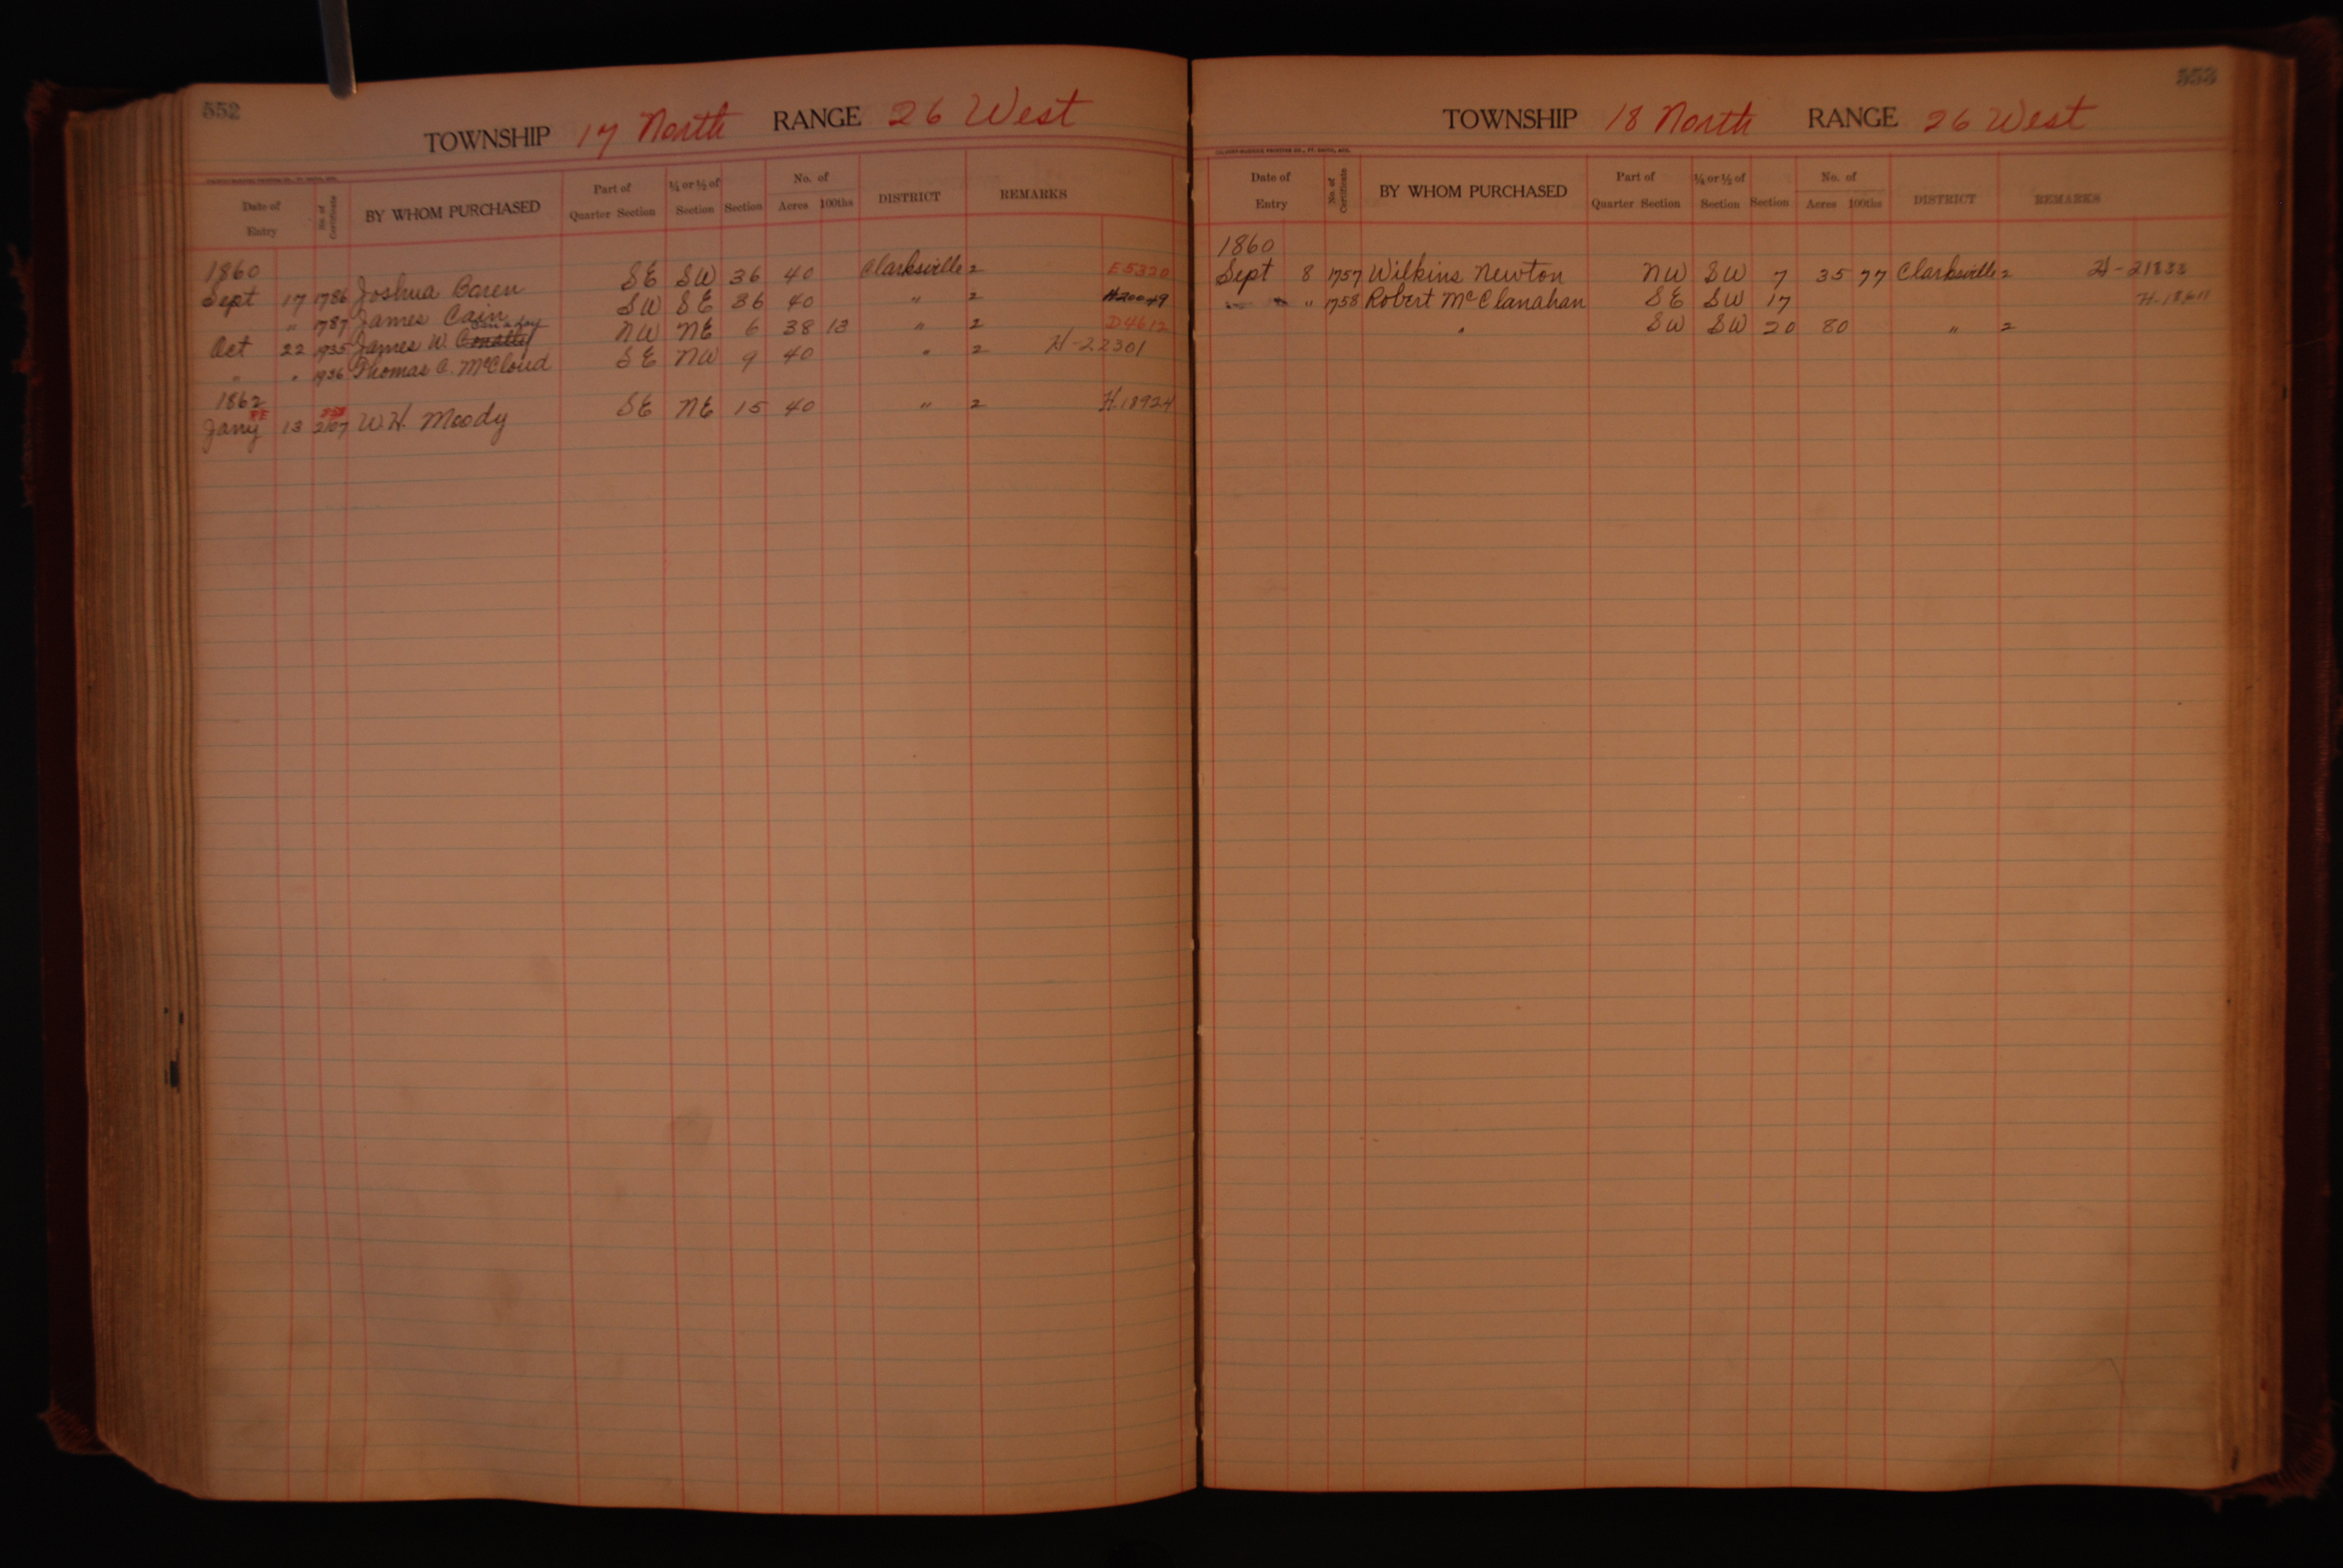 552
TOWNSHIP 17 North RANGE 26 West
Date of Entry | No. of Certificate | BY WHOM PURCHASED | Part of Quarter Section | ¼ or ½ of Section | Section | No. of Acres 100ths | DISTRICT | REMARKS
1860
Sept 17 1786 Joshua Boren SE SW 36 40 Clarksville 2 E5320
" 1787 James Cain SW SE 36 40 " 2 H20049
Oct 22 1935 James W. NW NE 6 38 13 " 2 D4612
" " 1936 Thomas C. McCloud SE NW 9 40 " 2 H-22301
1862
Jany 13 2107 W.H. Moody SE NE 15 40 " 2 H.18924
553
TOWNSHIP 18 North RANGE 26 West
CALVERT-McBRIDE PRINTING CO., FT. SMITH, ARK.
Date of Entry | No. of Certificate | BY WHOM PURCHASED | Part of Quarter Section | ¼ or ½ of Section | Section | No. of Acres 100ths | DISTRICT | REMARKS
1860
Sept 8 1757 Wilkins Newton NW SW 7 35 77 Clarksville 2 H-21833
" 1758 Robert McClanahan SE SW 17 H-18611
" SW SW 20 80 " 2